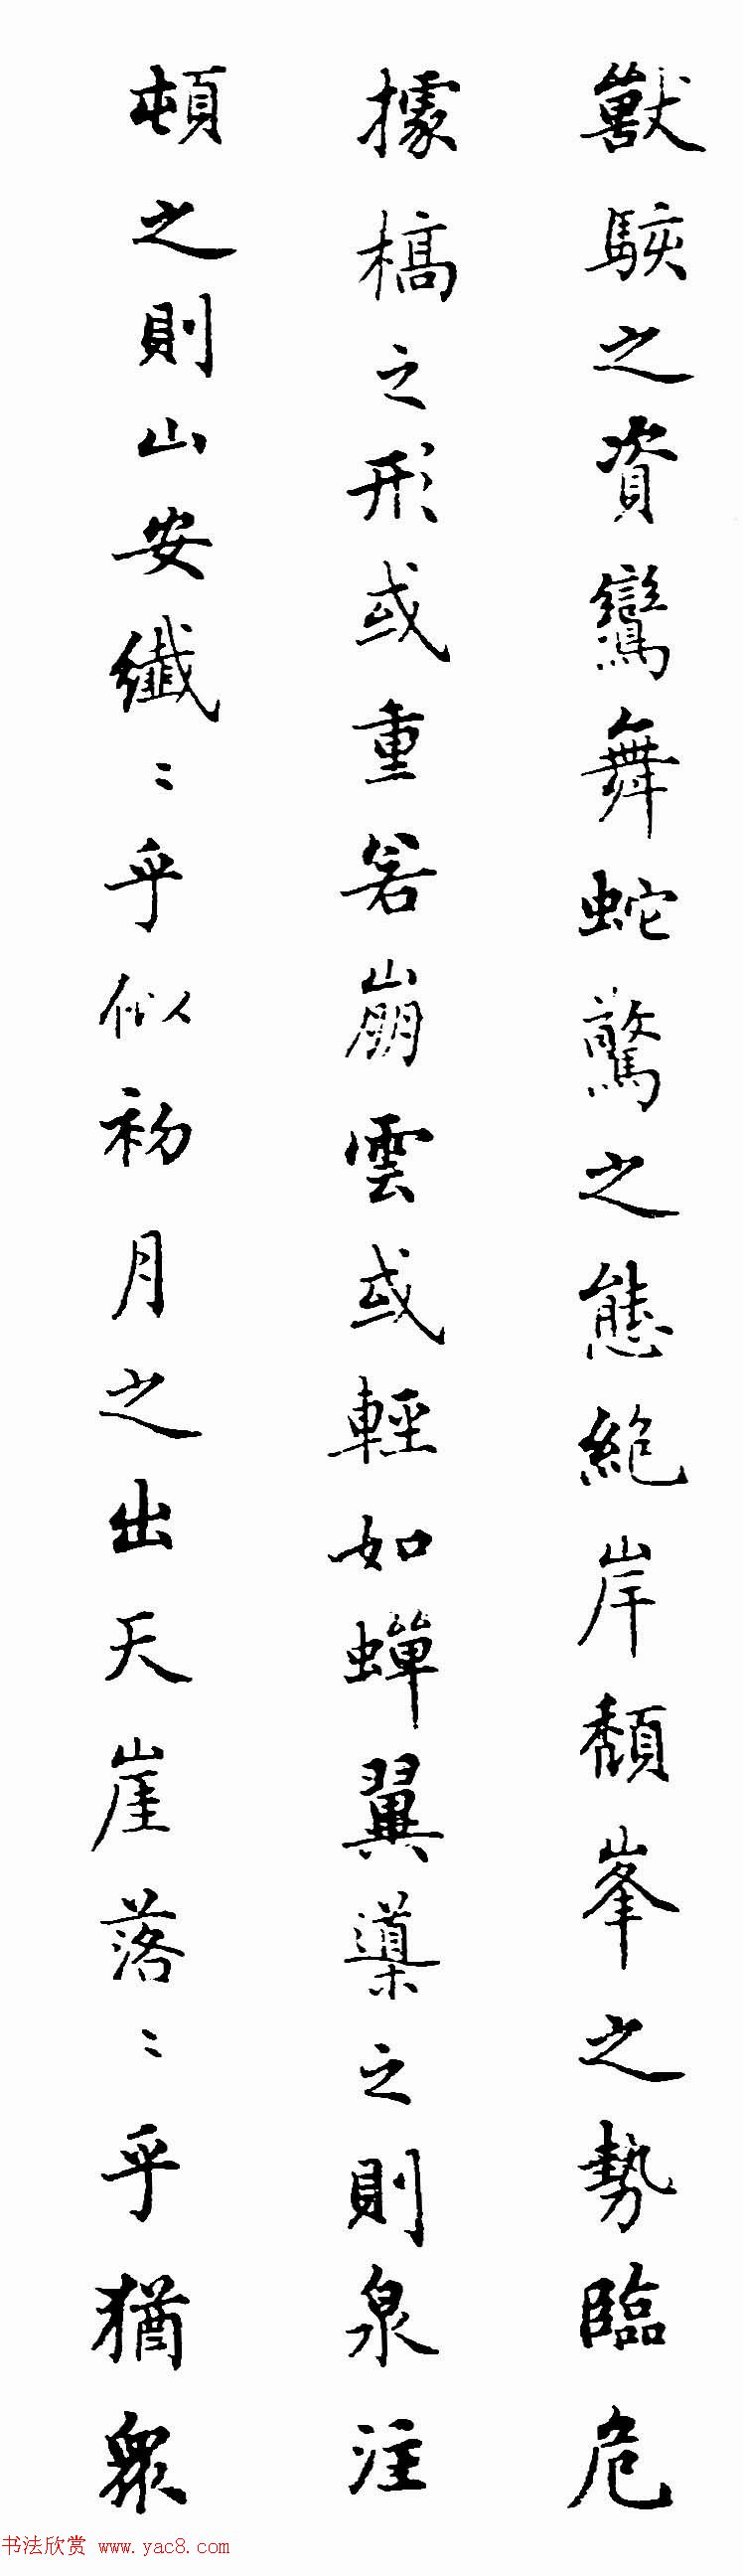 獸駭之資鸞舞蛇驚之態絕岸頹峯之勢臨危
據槁之形或重若崩雲或輕如蟬翼導之則泉注
頓之則山安纖〻乎似初月之出天崖落〻乎猶衆
书法欣赏 www.yac8.com